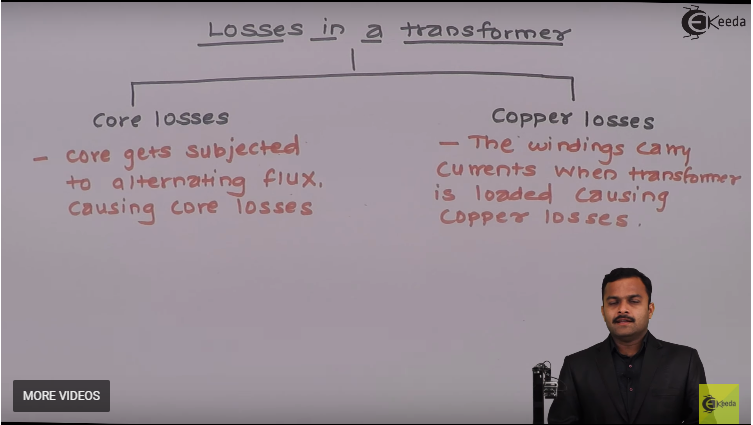 Losses in a transformer
EKeeda
Core losses
– core gets subjected
to alternating flux,
causing core losses
Copper losses
– The windings carry
currents when transformer
is loaded causing
copper losses.
MORE VIDEOS
EKeeda